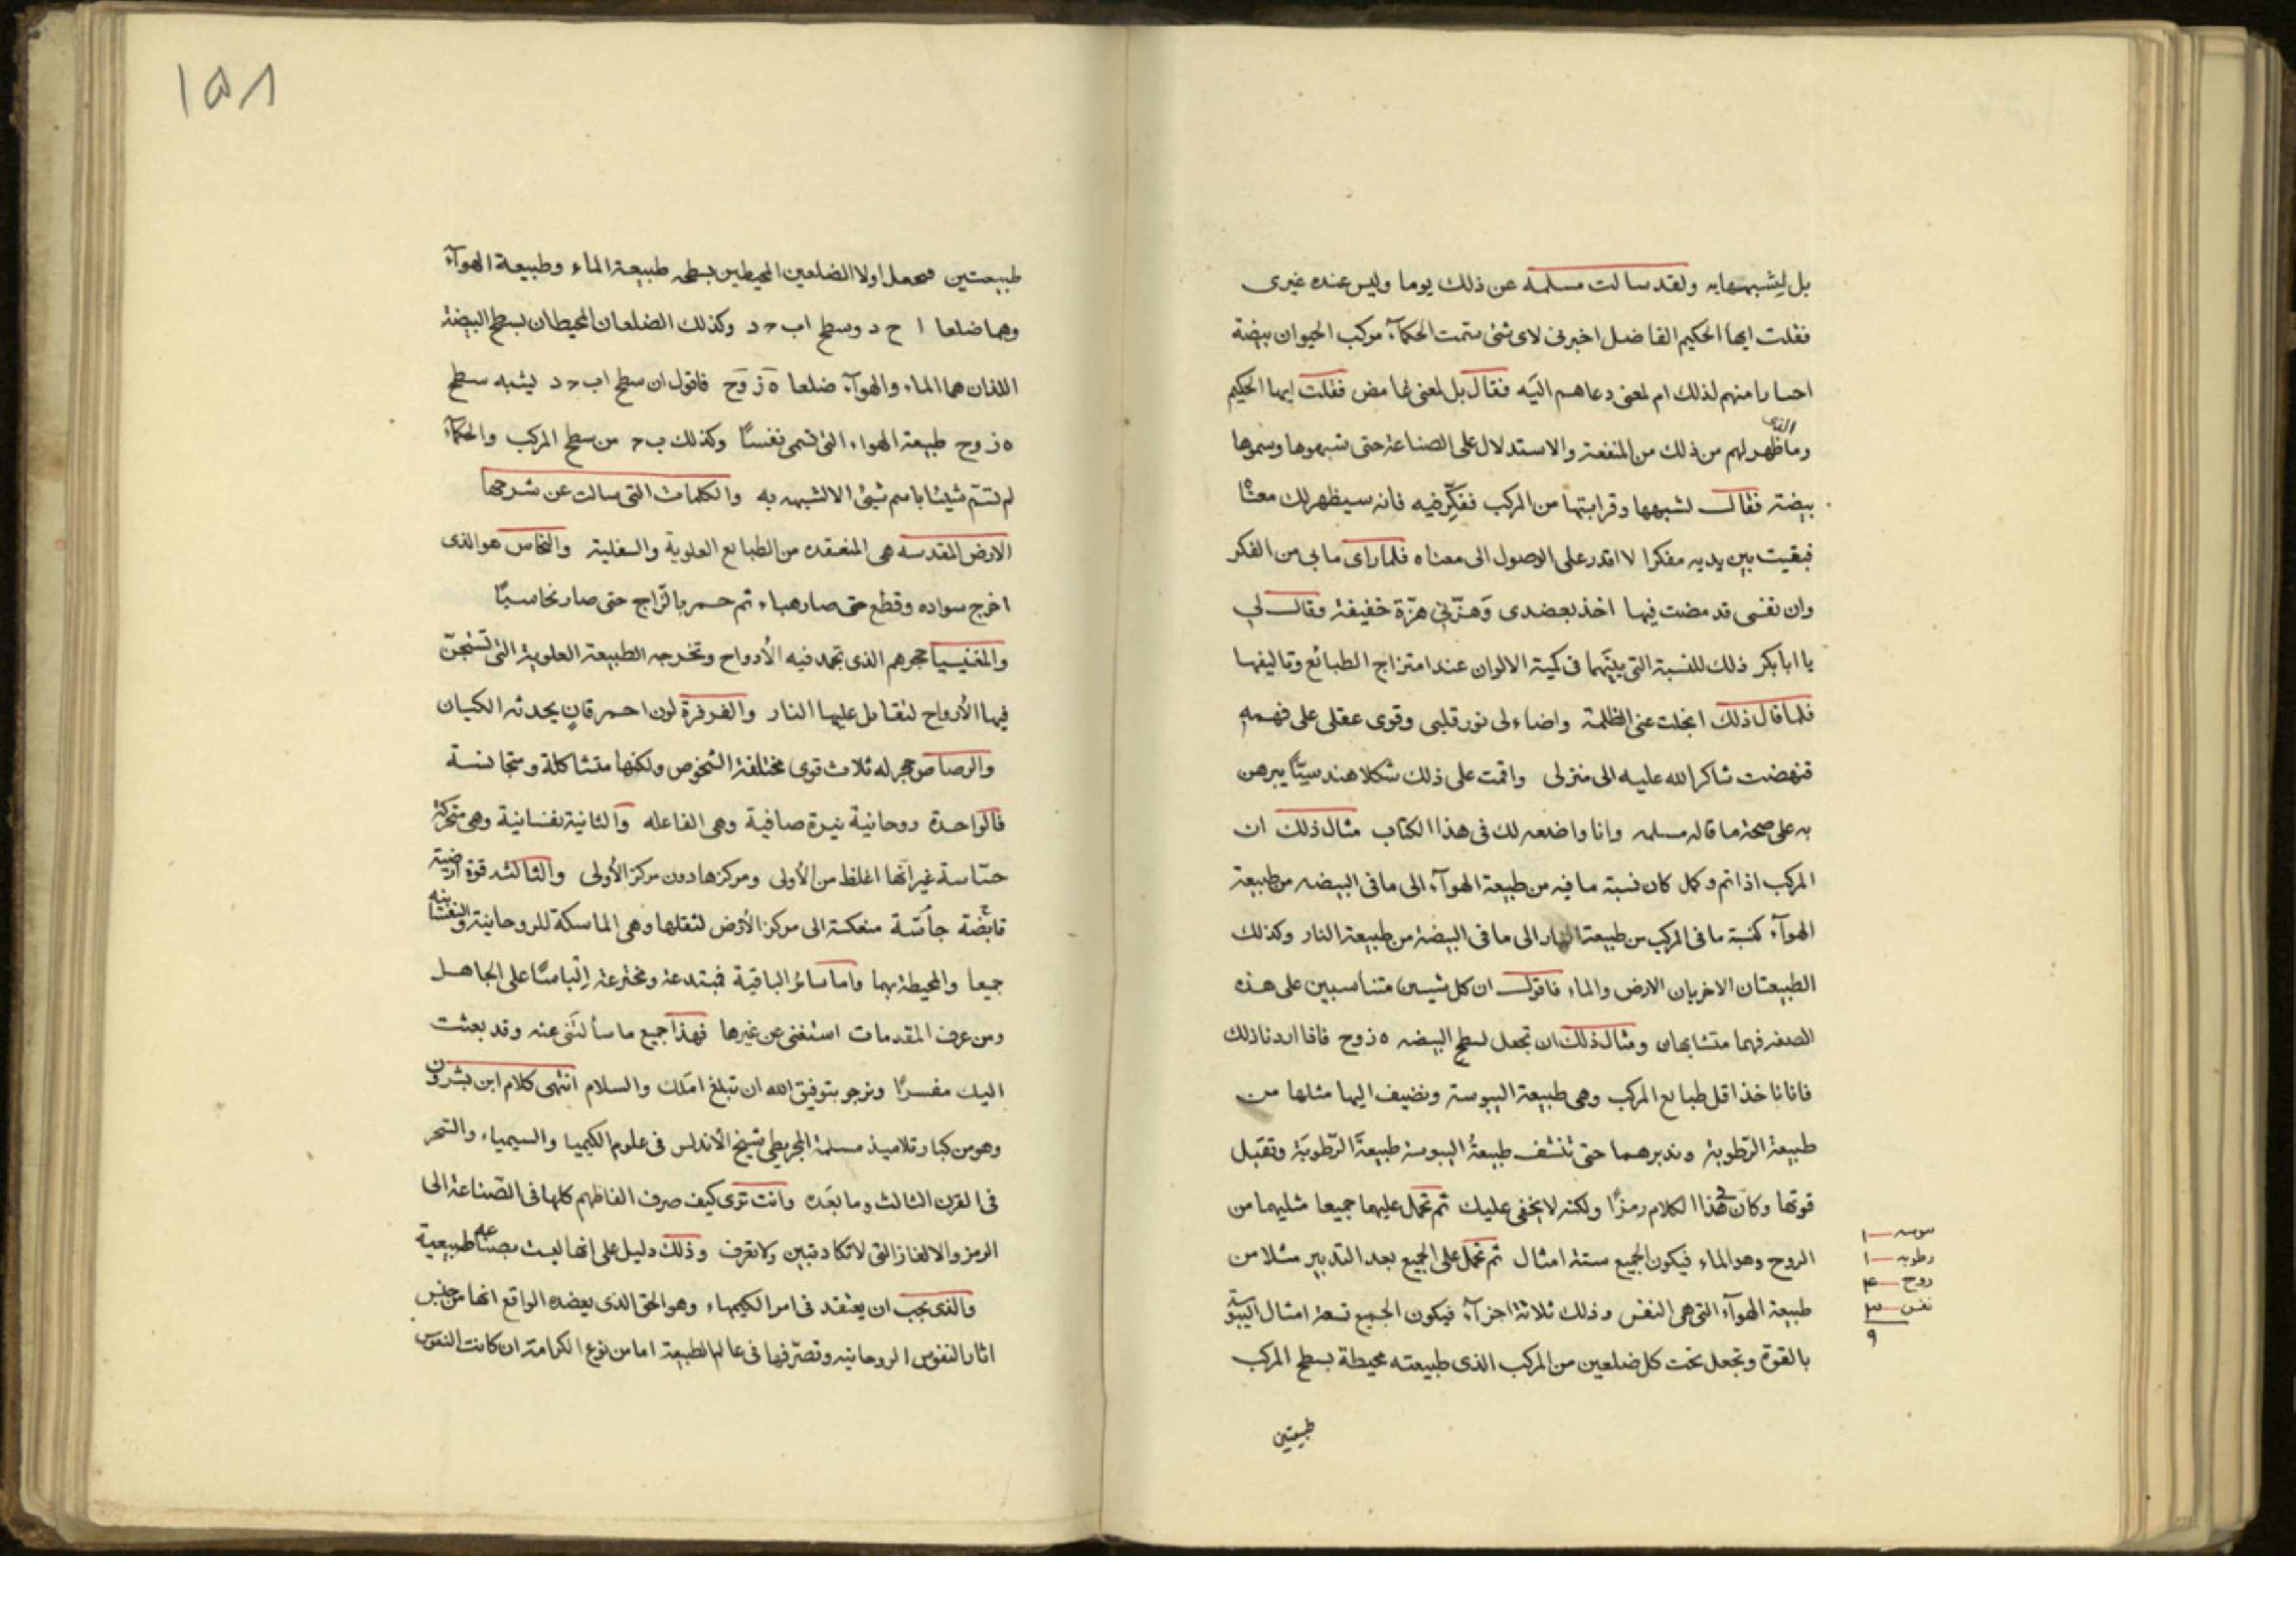 بل لِشبهها به ولقد سالت مسلمه عن ذلك يوما وليس عنده غيرى
فقلت ايها الحكيم الفاضل اخبرنى لاى شئ سمّت الحكمآء مركب الحيوان بيضة
احسارا منهم لذلك ام لمعنى دعاهم اليَه فقال بل لمعنى غامض فقلت ايها الحكيم
وما الذى ظهر لهم من ذلك من المنفعة والاستدلال على الصناعة حتى شبهوها وسموها
بيضة فقال لشبهها وقرابتها من المركب ففكِّر فيه فانه سيظهر لك معناه
فبقيت بين يديه مفكرا لا اقدر على الوصول الى معناه فلما راى ما بى من الفكر
وان نفسى قد مضت فيها اخذ بعضدى وَهزّنِى هزّة خفيفة وقال لى
يا ابا بكر ذلك للنسبة التى بينَهما فى كمية الالوان عند امتزاج الطبائع وتاليفها
فلما قال ذلك انجلت عنى الظلمة واضاء لى نور قلبى وقوى عقلى على فهمه
فنهضت شاكر الله عليه الى منزلى واقمت على ذلك شكلا هندسيّا يبرهن
به على صحة ما قاله مسلمه وانا واضعه لك فى هذا الكتاب مثال ذلك ان
المركب اذا تم وكمل كان نسبة ما فيه من طبيعة الهوآء الى ما فى البيضه من طبيعة
الهوآء كنسبة ما فى المركب من طبيعة النار الى ما فى البيضة من طبيعة النار وكذلك
الطبيعتان الاخريان الارض والماء فاقول ان كل شيىين متناسبين على هذه
الصفه فهما متشابهان ومثال ذلك ان تجعل لسطح البيضه ه ز و ح فاذا اردنا ذلك
فانا ناخذ اقل طبايع المركب وهى طبيعة اليبوسة ونضيف اليها مثلها من
طبيعة الرّطوبة وندبرهما حتى تنشف طبيعةُ اليبوسة طبيعةَ الرّطوبَة وتقبَل
قوتها وكان هذا الكلام رمزًا ولكنه لا يخفى عليك ثم تحمل عليها جميعا مثليهما من
الروح وهو الماء فيكون الجميع ستة امثال ثم تحمل على الجميع بعد التدبير مثلا من
طبيعة الهوآء التى هى النفس وذلك ثلاثة اجزآء فيكون الجميع تسعة امثال اليبوسة
بالقوة وتجعل تحت كل ضلعين من المركب الذى طبيعته محيطة بسطح المركب
طبيعتين
ىبوسه ١
رطوبه ١
روح ۴
نفس ٣
٩
١٥٨
طبيعتين فتجعل اولا الضلعين المحيطين بسطحه طبيعة الماء وطبيعة الهوآء
وهما ضلعا ا ح د وسطح اب ح د وكذلك الضلعان المحيطان بسطح البيضة
اللذان هما الماء والهوآء ضلعا ه ز و ح فاقول ان سطح اب ح د يشبه سطح
ه ز و ح طبيعة الهواء التى تسمى نفسًا وكذلك ب ح من سطح المركب والحكمآء
لم تسمّ شيئا باسم شئ الا لشبهه به والكلمات التى سالت عن شرحها
الارض المقدسه هى المنعقده من الطبايع العلوية والسفلية والنحاس هو الذى
اخرج سواده وقطع حتى صار هباء ثم حمر بالزّاج حتى صار نحاسيًا
والمغنيسيا حجرهم الذى تجمد فيه الأرواح وتخرجه الطبيعة العلوية التى تستجنّ
فيها الأرواح لتقابل عليها النار والفرفرة لون احمر قانٍ يحدثه الكيان
والرصاص حجر له ثلاث قوى مختلفة الشخوص ولكنها متشاكلة ومتجانسة
فالواحدة روحانية نيرة صافية وهى الفاعله والثانية نفسانية وهى متحركة
حسّاسة غير انّها اغلظ من الأولى ومركزها دون مركز الأولى والثالثه قوة ارضية
قابضة جاسّة منعكسة الى مركز الأرض لثقلها وهى الماسكة للروحانية والنفسانيه
جميعا والمحيطة بهما واما سائر الباقية فمبتدعة ومخترعة اِلْباسًا على الجاهل
ومن عرف المقدمات استغنى عن غيرها فهذا جميع ما سألتنى عنه وقد بعثت
اليك مفسرًا ونرجو بتوفيق الله ان تبلغ املك والسلام انتهى كلام ابن بشرون
وهو من كبار تلاميذ مسلمة المجريطى شيخ الأندلس فى علوم الكيميا والسيمياء والسّحر
فى القرن الثالث وما بعَده وانت ترى كيف صرف الفاظهم كلها فى الصّناعة الى
الرمز والالغاز التى لا تكاد تبين ولا تعرف وذلك دليل على انها ليست بصناعه طبيعية
والذى يجب ان يعتقد فى امر الكيمياء وهو الحق الذى يعضده الواقع انها من جنس
اثار النفوس الروحانيه وتصرّفها فى عالم الطبيعة اما من نوع الكرامة ان كانت النفوس